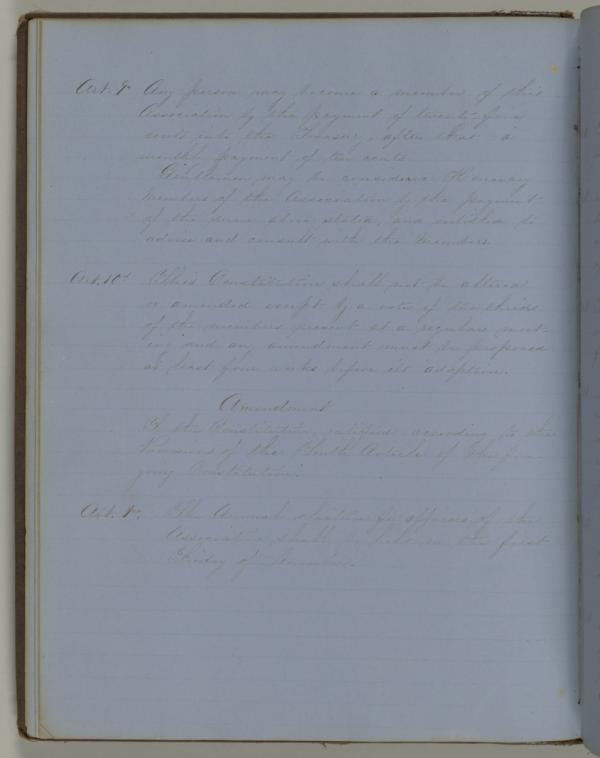 Art. 9. Any person may become a member of this
Association by the payment of twenty-five
cents into the Treasury, after that a
monthly payment of ten cents.
Gentlemen may be considered Honorary
Members of the Association by the payment
of the same above stated, and entitled to
advise and consult with the Members.
Art. 10th This Constitution shall not be altered
or amended except by a vote of two thirds
of the members present at a regular meet-
ing and any amendment must be proposed
at least four weeks before its adoption.
Amendment
Of the Constitution, ratified according to the
Provisions of the Tenth Article of the fore-
going Constitution.
Art. 1st. The Annual election for officers of the
Association shall be held on the first
Friday of